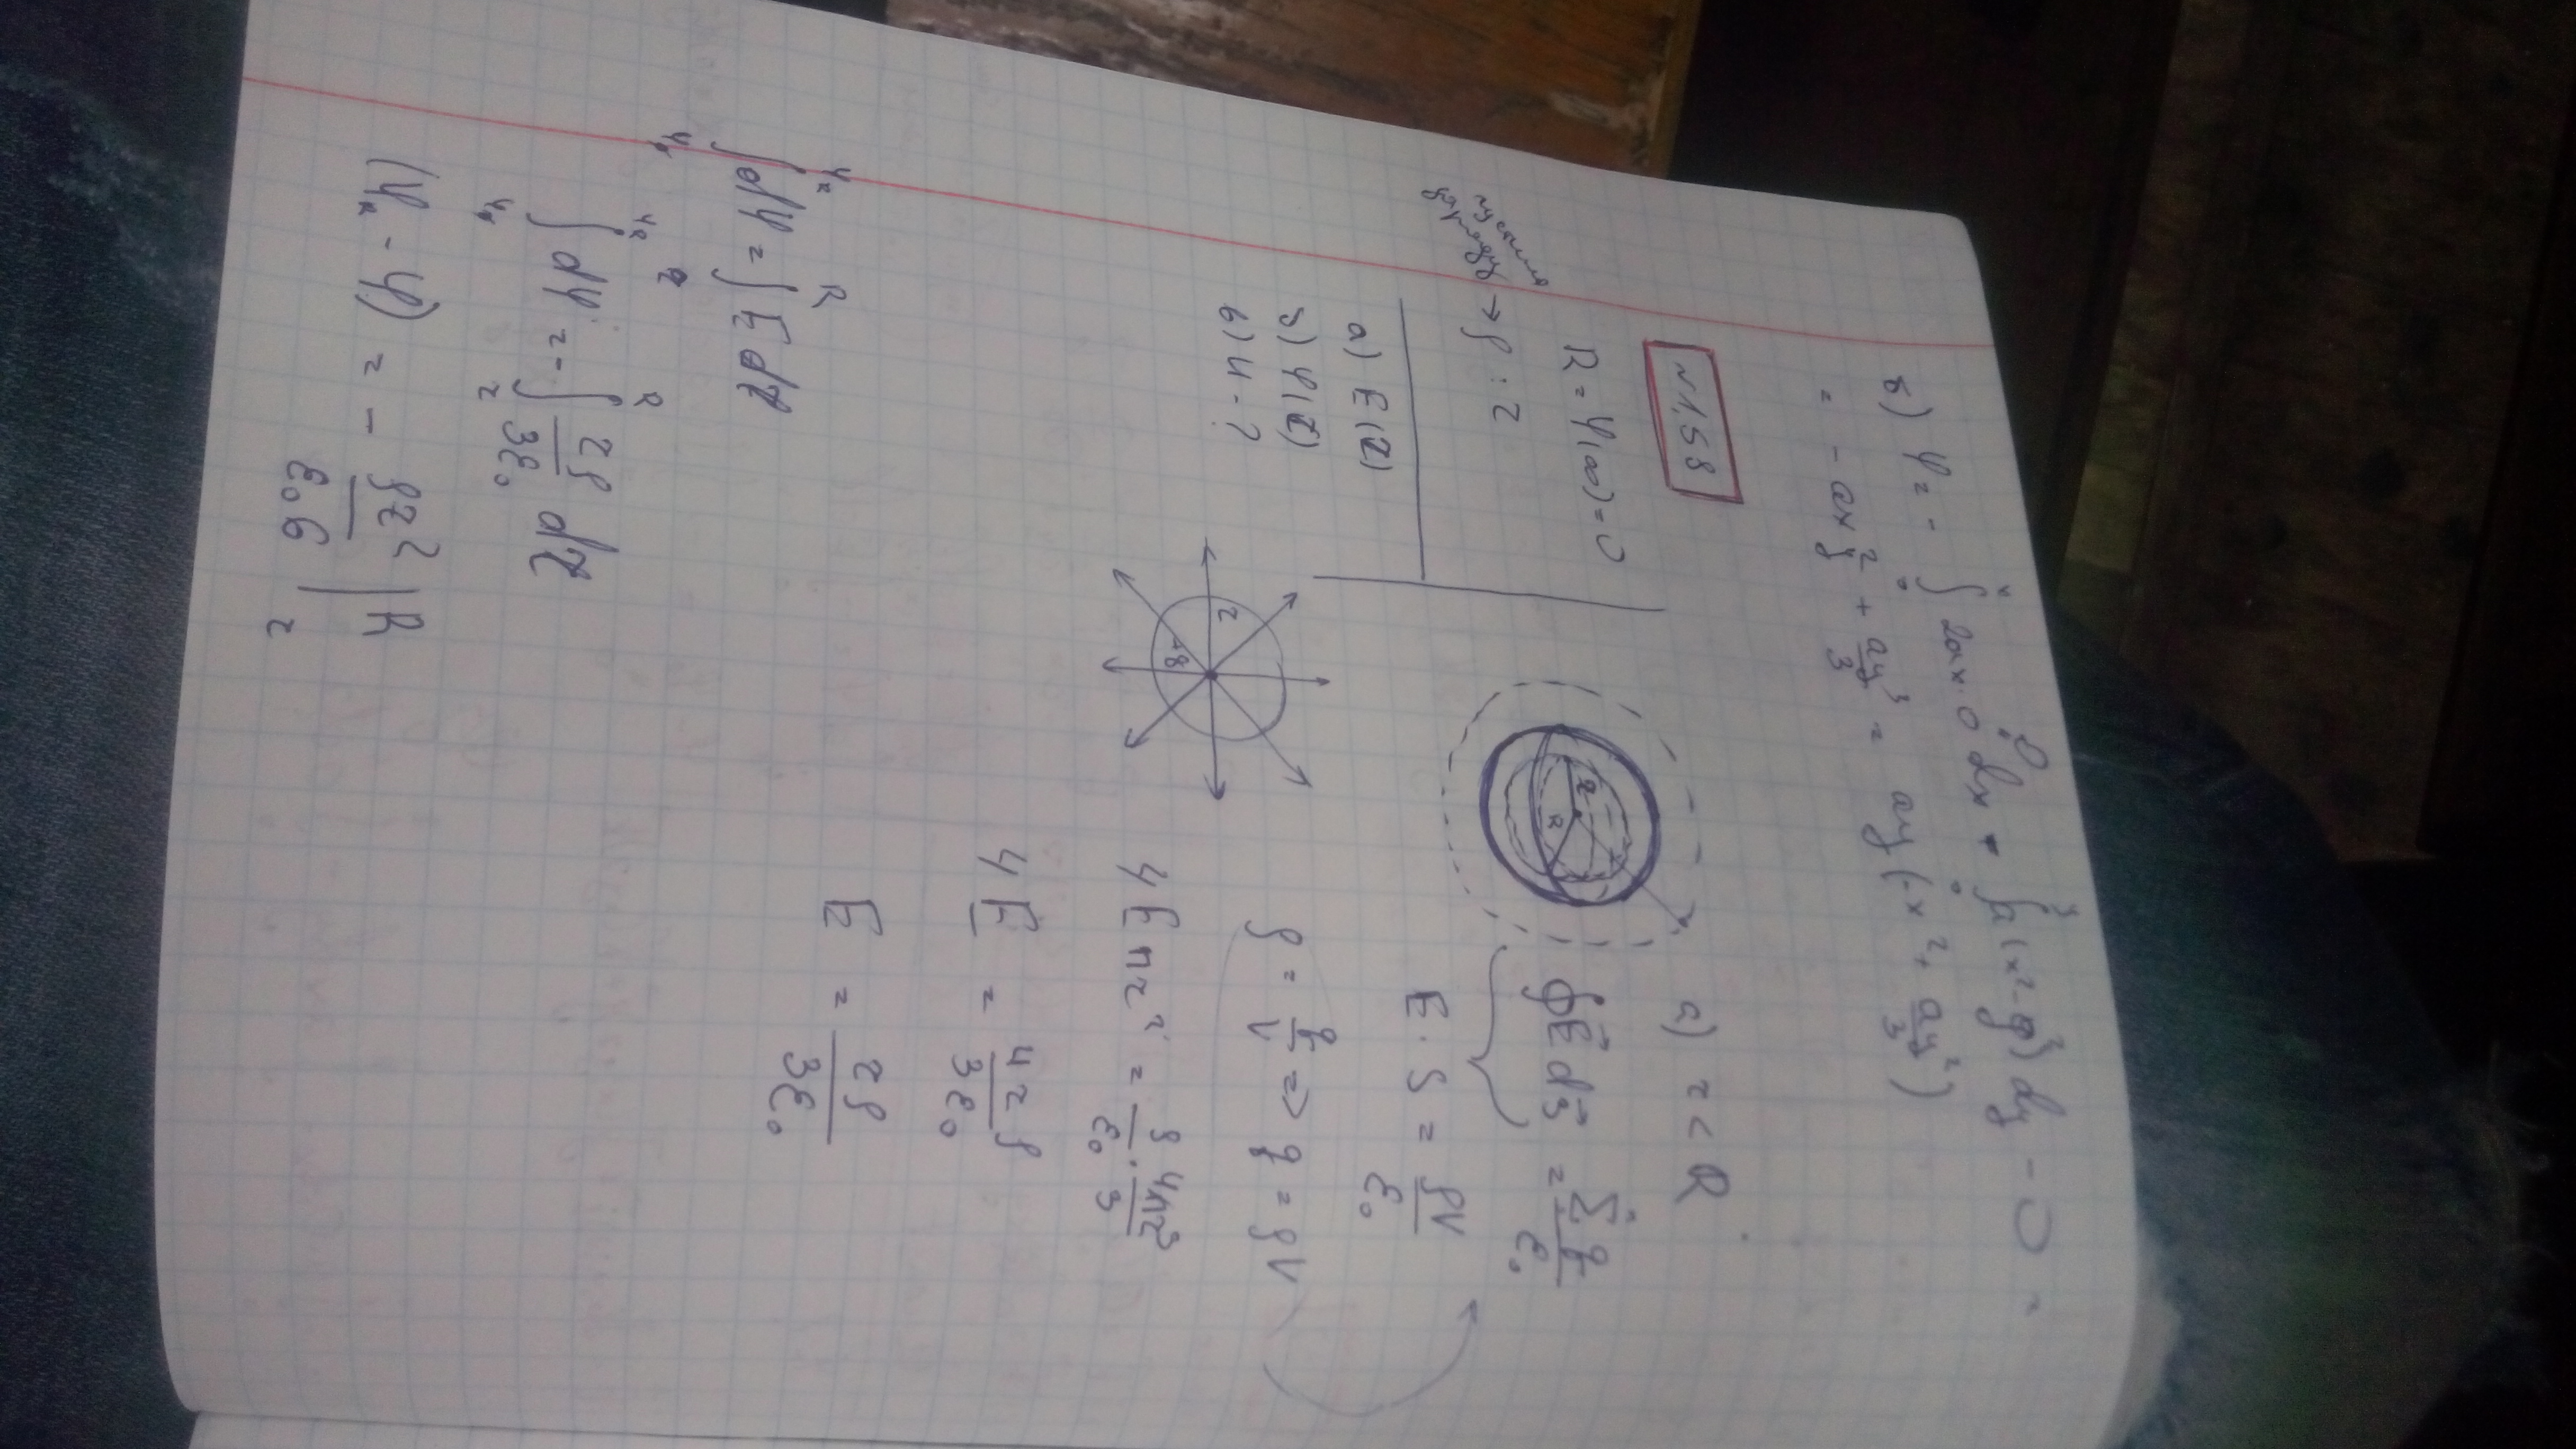 б) φ = - ∫₀ˣ 2ax·0 dx + ∫₀ʸ a(x² - y²) dy - 0 =
= - ax²y + ay³/3 = ay(-x² + ay²/3)
N 1.58
R = φ(∞) = 0
→ ρ : r
а) E(r)
б) φ(r)
в) u - ?
r
R
а) r < R
∮ E⃗ dS⃗ = Σq/ε₀
E · S = ρV/ε₀
ρ = q/V => q = ρV
4Eπr² = ρ/ε₀ · 4πr³/3
4E = 4rρ/3ε₀
E = rρ/3ε₀
r
+q
∫ dφ = ∫ E dr
∫ dφ = - ∫ rρ/3ε₀ dr
(φ_R - φ) = - ρr²/ε₀6 |